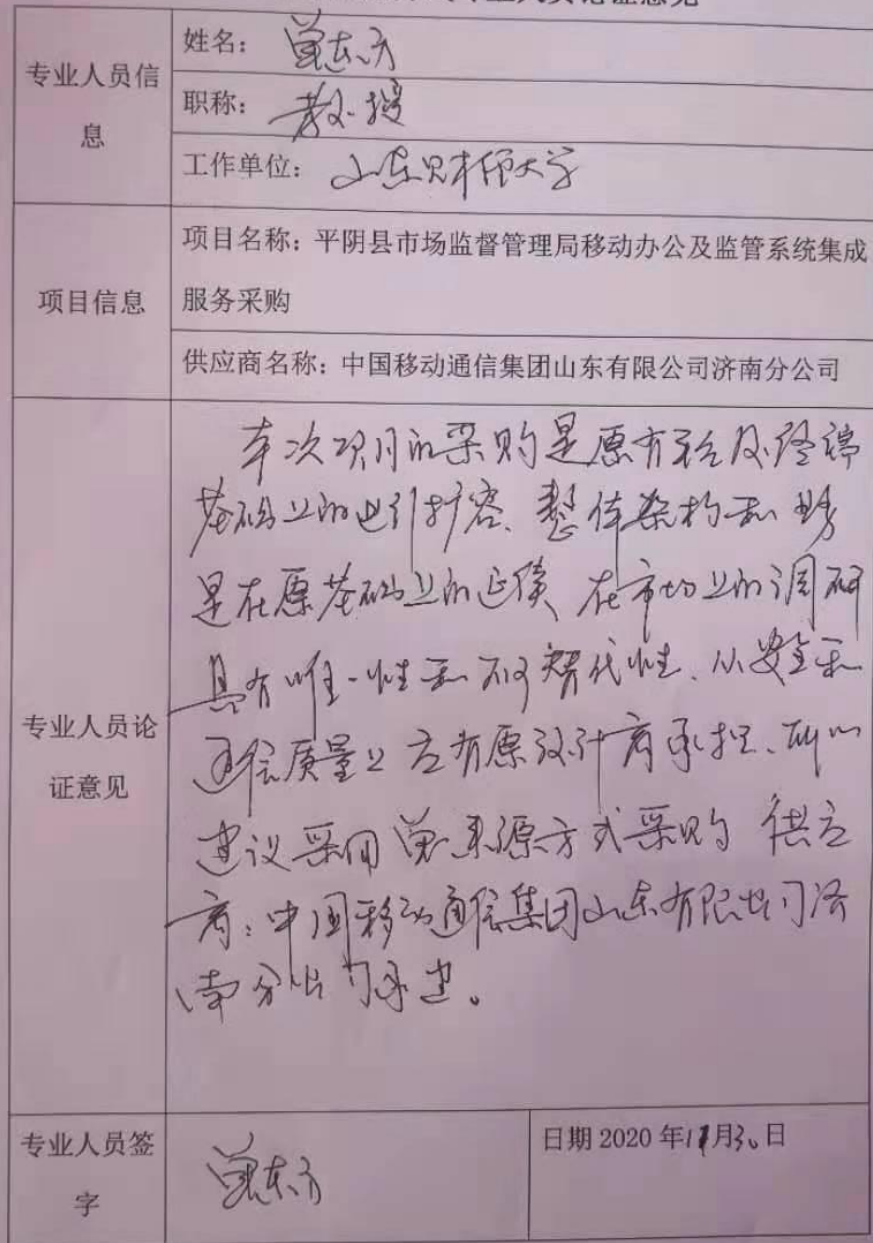 专业人员信
息
姓名：单东方
职称：教授
工作单位：山东财经大学
项目信息
项目名称：平阴县市场监督管理局移动办公及监管系统集成
服务采购
供应商名称：中国移动通信集团山东有限公司济南分公司
专业人员论
证意见
本次项目的采购是原有平台及终端
基础上的进行扩容、整体架构和
是在原基础上的延续 在市场上的调研
具有唯一性和不可替代性、从安全和
通信质量上应有原设计商承担、所以
建议采用单一来源方式采购 供应
商：中国移动通信集团山东有限公司济
南分公司承建。
专业人员签
字
单东方
日期 2020 年11月30日